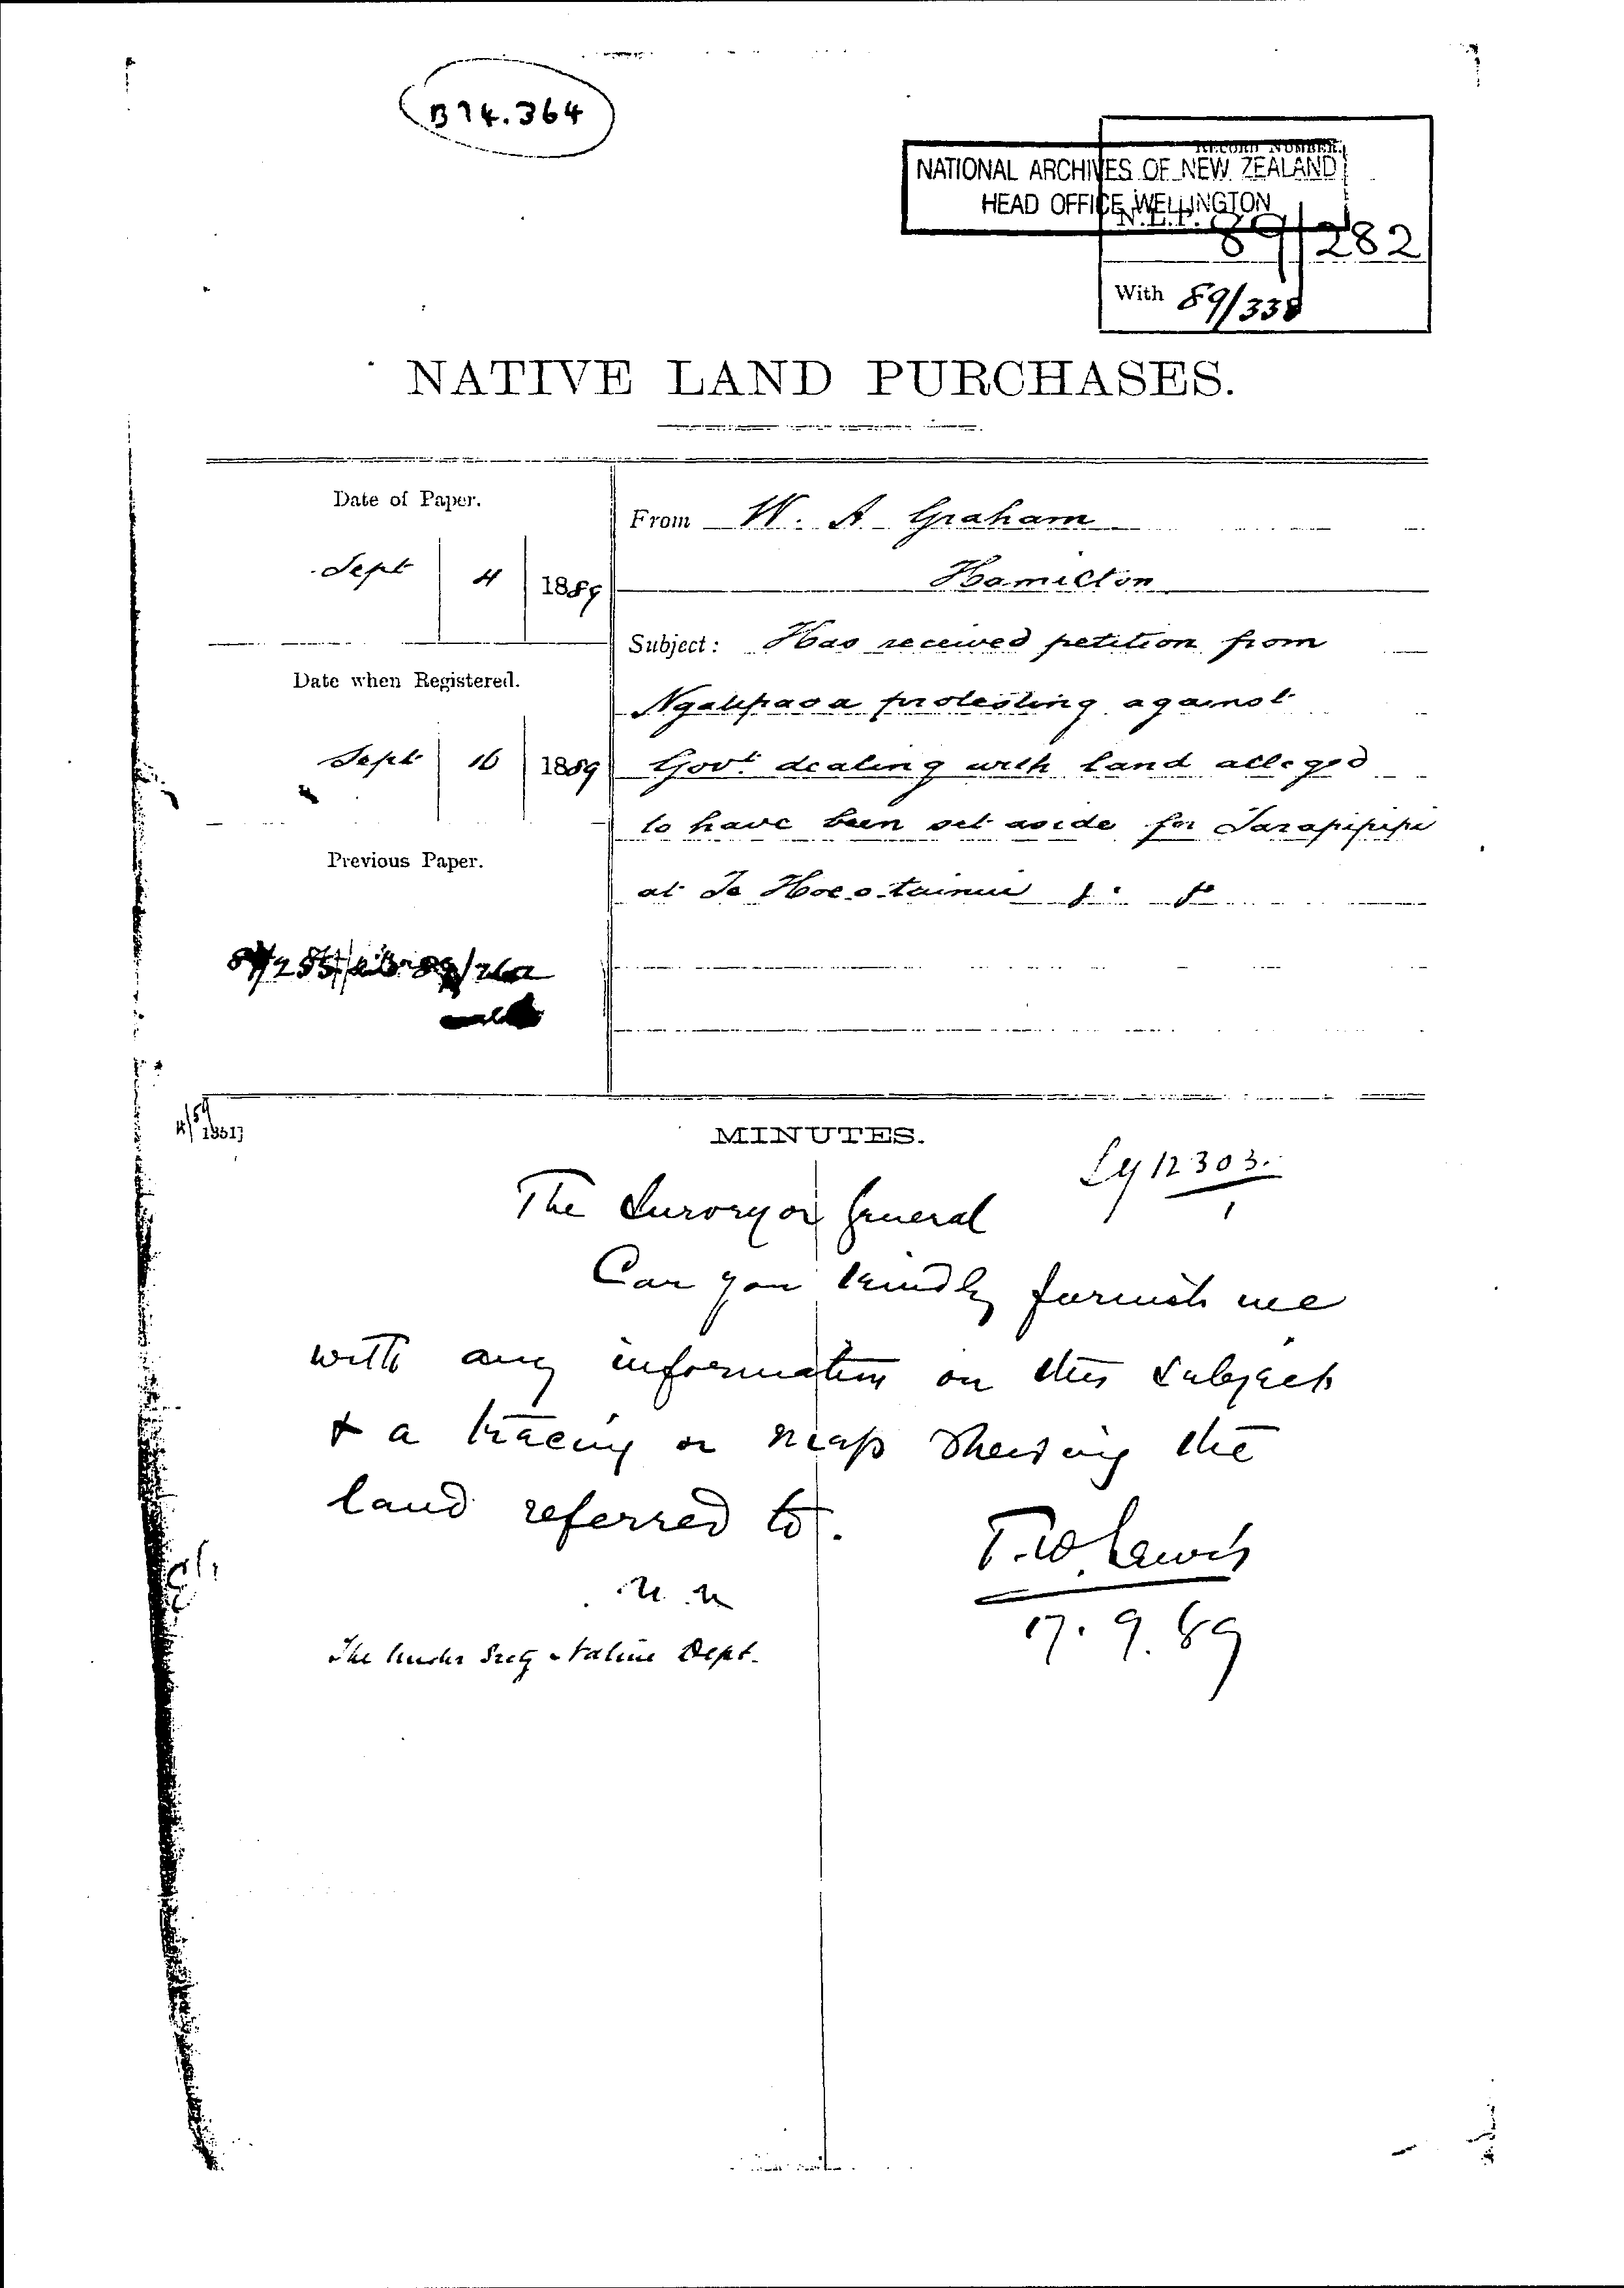 B74.364
RECORD NUMBER.
NATIONAL ARCHIVES OF NEW ZEALAND
HEAD OFFICE WELLINGTON
N.L.P. 89/282
With 89/338
NATIVE LAND PURCHASES.
Date of Paper.
Sept 4 1889
From W. A Graham
Hamilton
Subject: Has received petition from
Ngatipaoa protesting against
Govt. dealing with land alleged
to have been set aside for Tarapipipi
at Te Hoe-o-tainui
Date when Registered.
Sept 16 1889
Previous Paper.
MINUTES.
12303.
1
The Surveyor General
Can you kindly furnish me
with any information on this subject
& a tracing or map shewing the
land referred to.
T.W. Lewis
17.9.89
The Under Secy Native Dept.